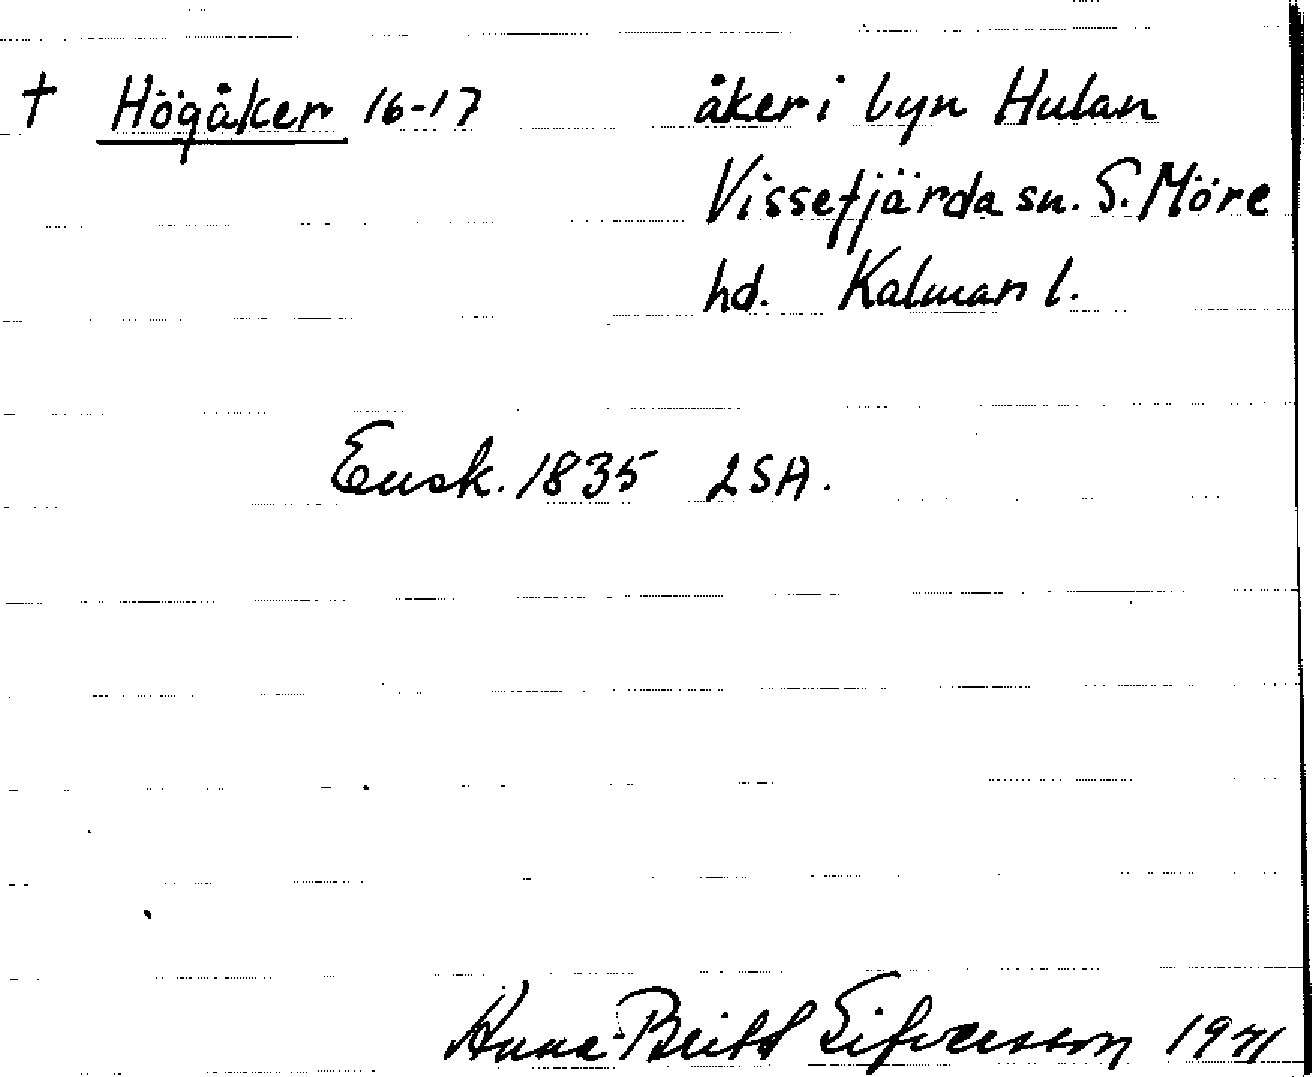 † Högåker 16-17 åker i byn Hulan
Vissefjärda sn. S. Möre
hd. Kalmar l.
Ensk. 1835 LSA.
Anna-Britt Sifversson 1971